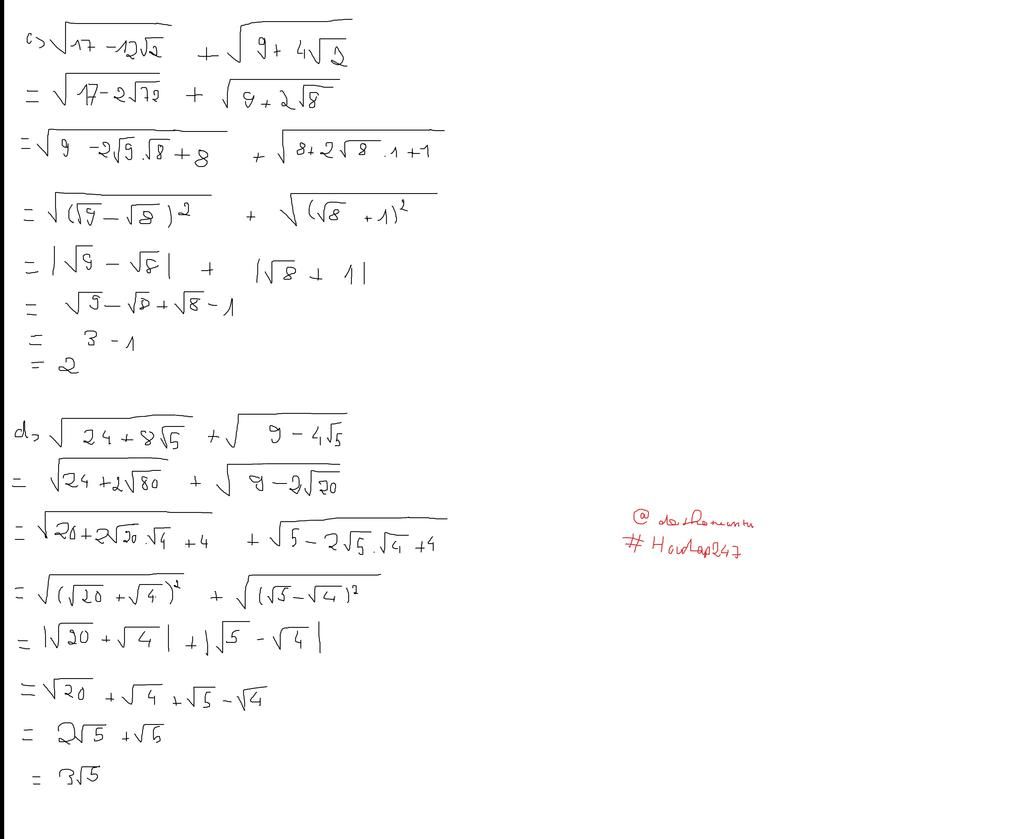 c> √(17 - 12√2) + √(9 + 4√2)
= √(17 - 2√72) + √(9 + 2√8)
= √(9 - 2√9.√8 + 8) + √(8 + 2√8.1 + 1)
= √((√9 - √8)²) + √((√8 + 1)²)
= |√9 - √8| + |√8 + 1|
= √9 - √8 + √8 - 1
= 3 - 1
= 2
d> √(24 + 8√5) + √(9 - 4√5)
= √(24 + 2√80) + √(9 - 2√20)
= √(20 + 2√20.√4 + 4) + √(5 - 2√5.√4 + 4)
= √((√20 + √4)²) + √((√5 - √4)²)
= |√20 + √4| + |√5 - √4|
= √20 + √4 + √5 - √4
= 2√5 + √5
= 3√5